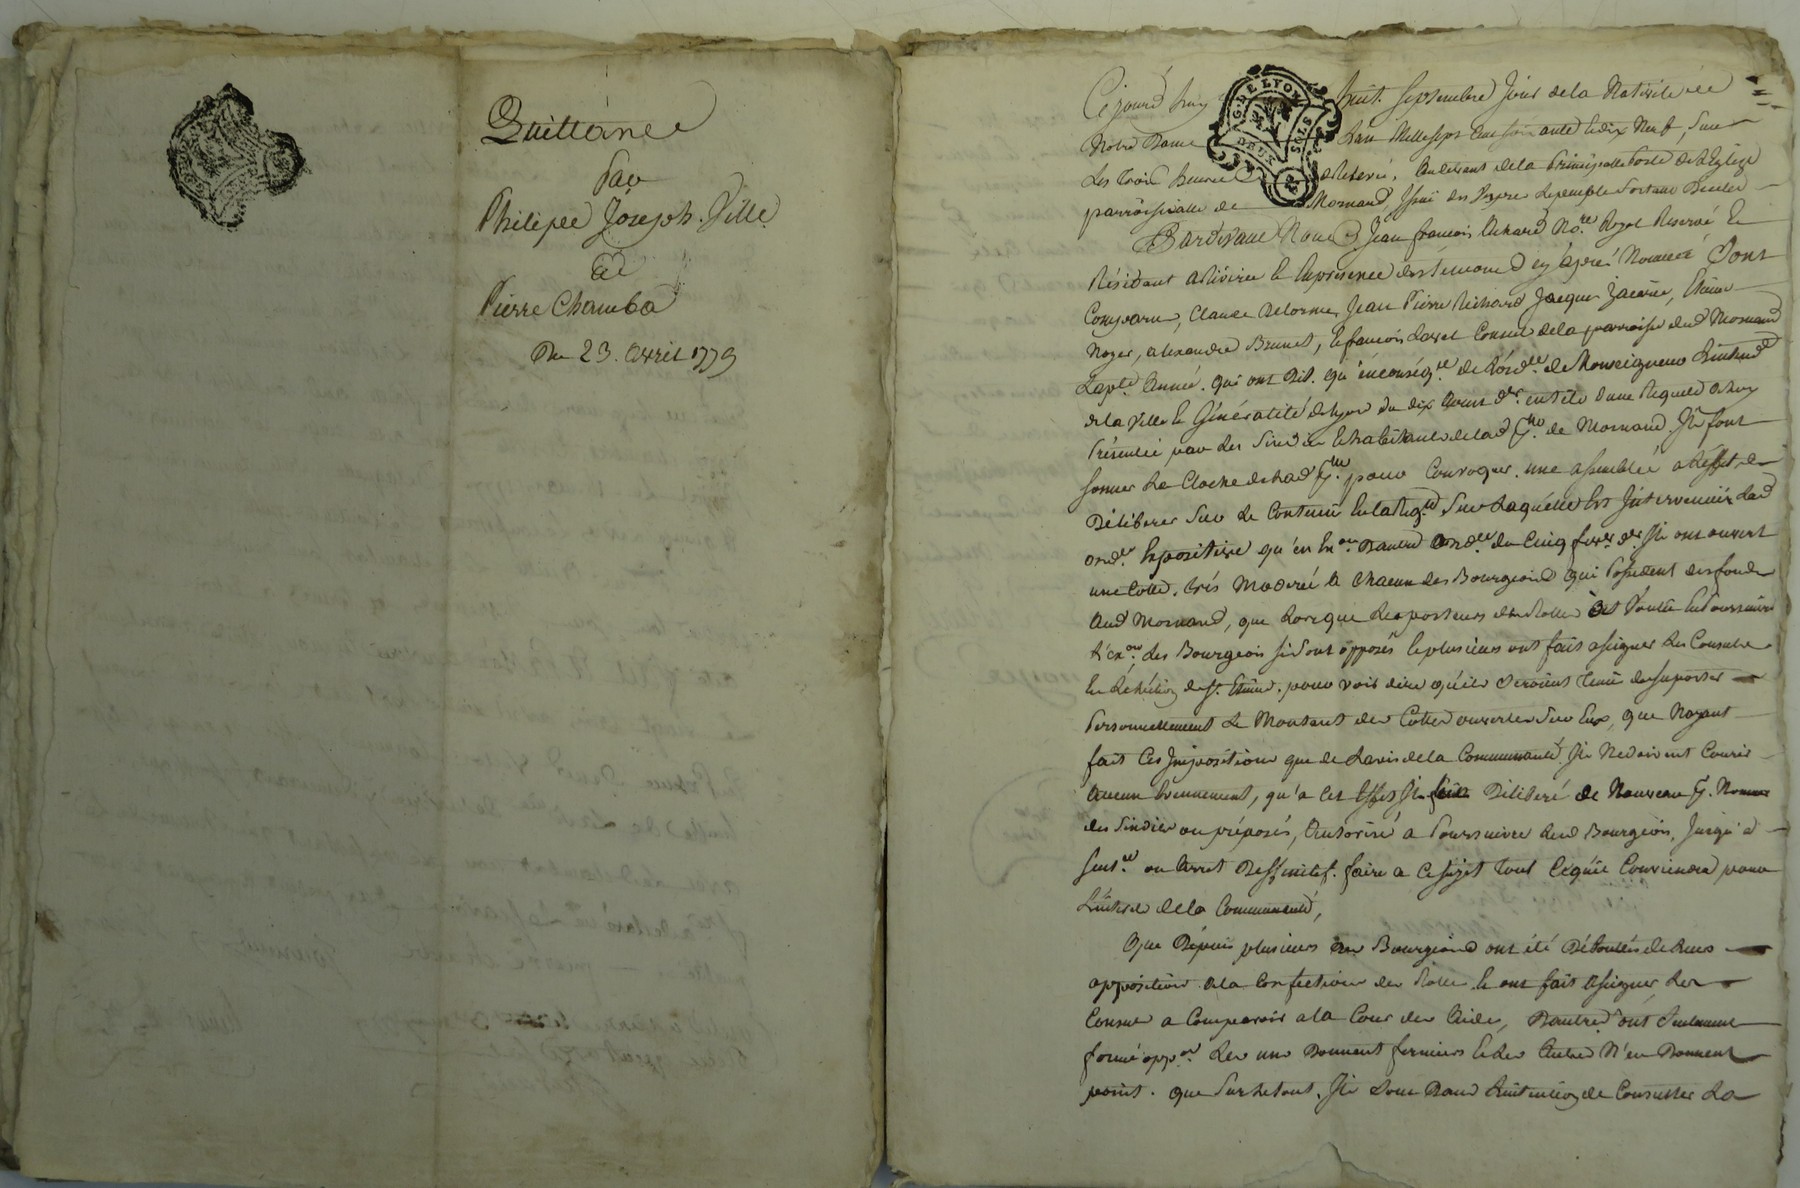 Quittance
Par
Philippe Joseph Ville
A
Pierre Chamba
Du 23. avril 1779
G. DE LYON
DEUX SOLS
Cejourd'huy huit Septembre Jour de la Nativité de
Notre Dame L'an Mille sept Cent soixante & dix Neuf, Sur
Les trois heures de Relevée, Audevant de la Principalle Porte de L'Eglize
parroissialle de Mornand, Issue des Vepres Le peuple Sortant D'icelle
Pardevant Nous Jean françois Achard No.re Royal Reservé &
Résidant à & En presence des témoins cy après Nommés Sont
Comparus, Claude Delorme, Jean Pierre Richard Jacques Etienne
Noyer, alexandre Brunet, & françois Consuls de la parroisse dud Mornand
La pnte Année. qui ont Dit. qu'en conséq.ce de L'ord.ce de Monseigneur L'intend.t
de la Ville & Généralité de Lyon du dix Aoust d.er entête D'une Requete à luy
Présentée par Les Sindics & habitants de lad C.té de Mornand. Ils font
sonner La Cloche de lad C.té pour Convoquer une assemblée à L'effet de
Déliberer Sur Le Contenu En la Req.te Sur Laquelle Est Intervenüe Lad
ord.ce Expositive qu'en Ex.on D'autre Ord.ce du Cinq d.er Ils ont ouvert
une Cotte très Moderée à Chacun des Bourgeois qui Possedent des fonds
Aud Mornand, que Lorsque Les porteurs des Rolles ont Voulu En Poursuivre
L'ex.on Les Bourgeois si sont opposés & plusieurs ont fait assigner Les Consuls
En L'Election de S.t Etienne. pour voir dire qu'ils seroient tenus de suporter
Personnellement Le Montant des Cottes ouvertes Sur Eux, que N'ayant
fait Ces Impositions que de L'avis de la Communauté. Ils Ne doivent Courir
Aucun Evennement, qu'a Cet Effet Ils Déliberé de Nouveau &
des Sindics ou préposés, Autorisé à Poursuivre Lesd Bourgeois, Jusqu'a
Sent.ce ou Arret Deffinitif. faire a Ce sujet Tout Ce qu'il Conviendra pour
L'intérêt de la Communauté,
Que Depuis plusieurs des Bourgeois ont été Déboutés de Leurs
opposition a la Confection des Rolles & ont fait assigner Les
Consuls a Comparoir a la Cour des Aides, D'autres ont Seulement
formé opp.on Les uns Donnent & Les Autres N'en Donnent
point. que Sur Le tout, Ils Sont Dans L'intention de Consulter La